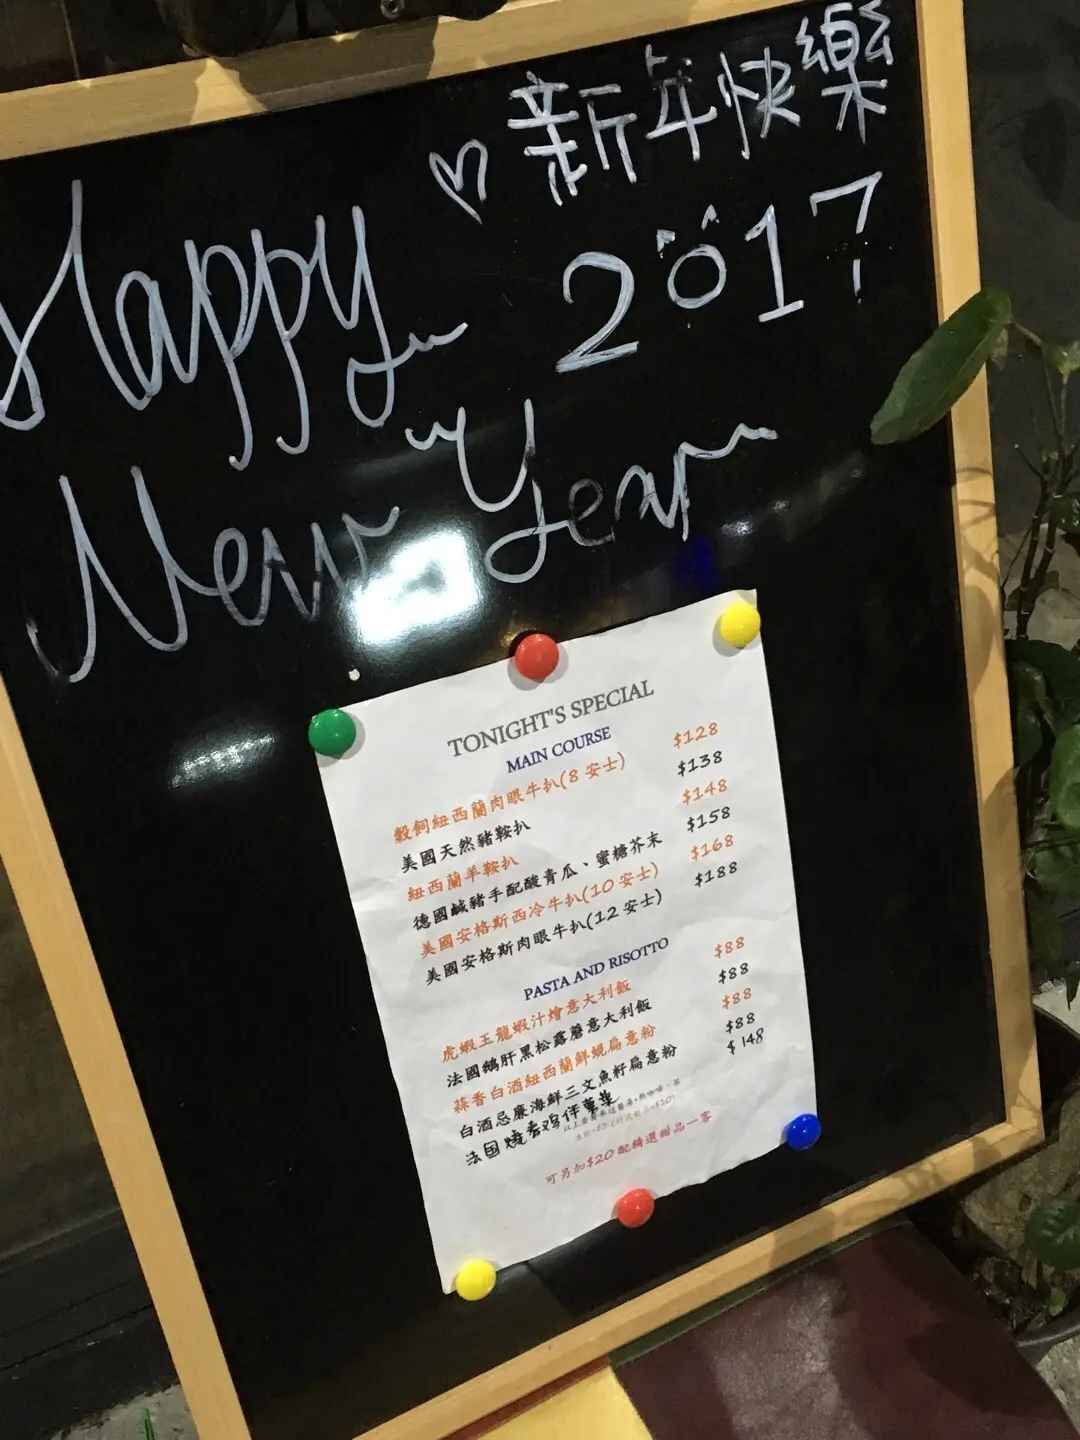 ♡新年快樂
Happy 2017
New Year
TONIGHT'S SPECIAL
MAIN COURSE
穀飼紐西蘭肉眼牛扒(8 安士) $128
美國天然豬鞍扒 $138
紐西蘭羊鞍扒 $148
德國鹹豬手配酸青瓜、蜜糖芥末 $158
美國安格斯西冷牛扒(10 安士) $168
美國安格斯肉眼牛扒(12 安士) $188
PASTA AND RISOTTO
虎蝦王龍蝦汁燴意大利飯 $88
法國鵝肝黑松露蘑意大利飯 $88
蒜香白酒紐西蘭鮮蜆扁意粉 $88
白酒忌廉海鮮三文魚籽扁意粉 $88
法国燒春鸡伴薯菜 $148
可另加$20 配精選甜品一客